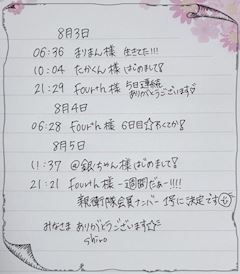 8月3日
06:36 まりまん様 生きてた!!!
10:04 たかくん様 はじめまして!
21:29 fourth様 5日連続
ありがとうございます
8月4日
06:28 fourth様 6日目☆
8月5日
11:37 @銀ちゃん様 はじめまして!
21:21 fourth様 一週間だぁー!!!!
親衛隊会員ナンバー 1号に決定です
みなさま ありがとうございます☆
shiro